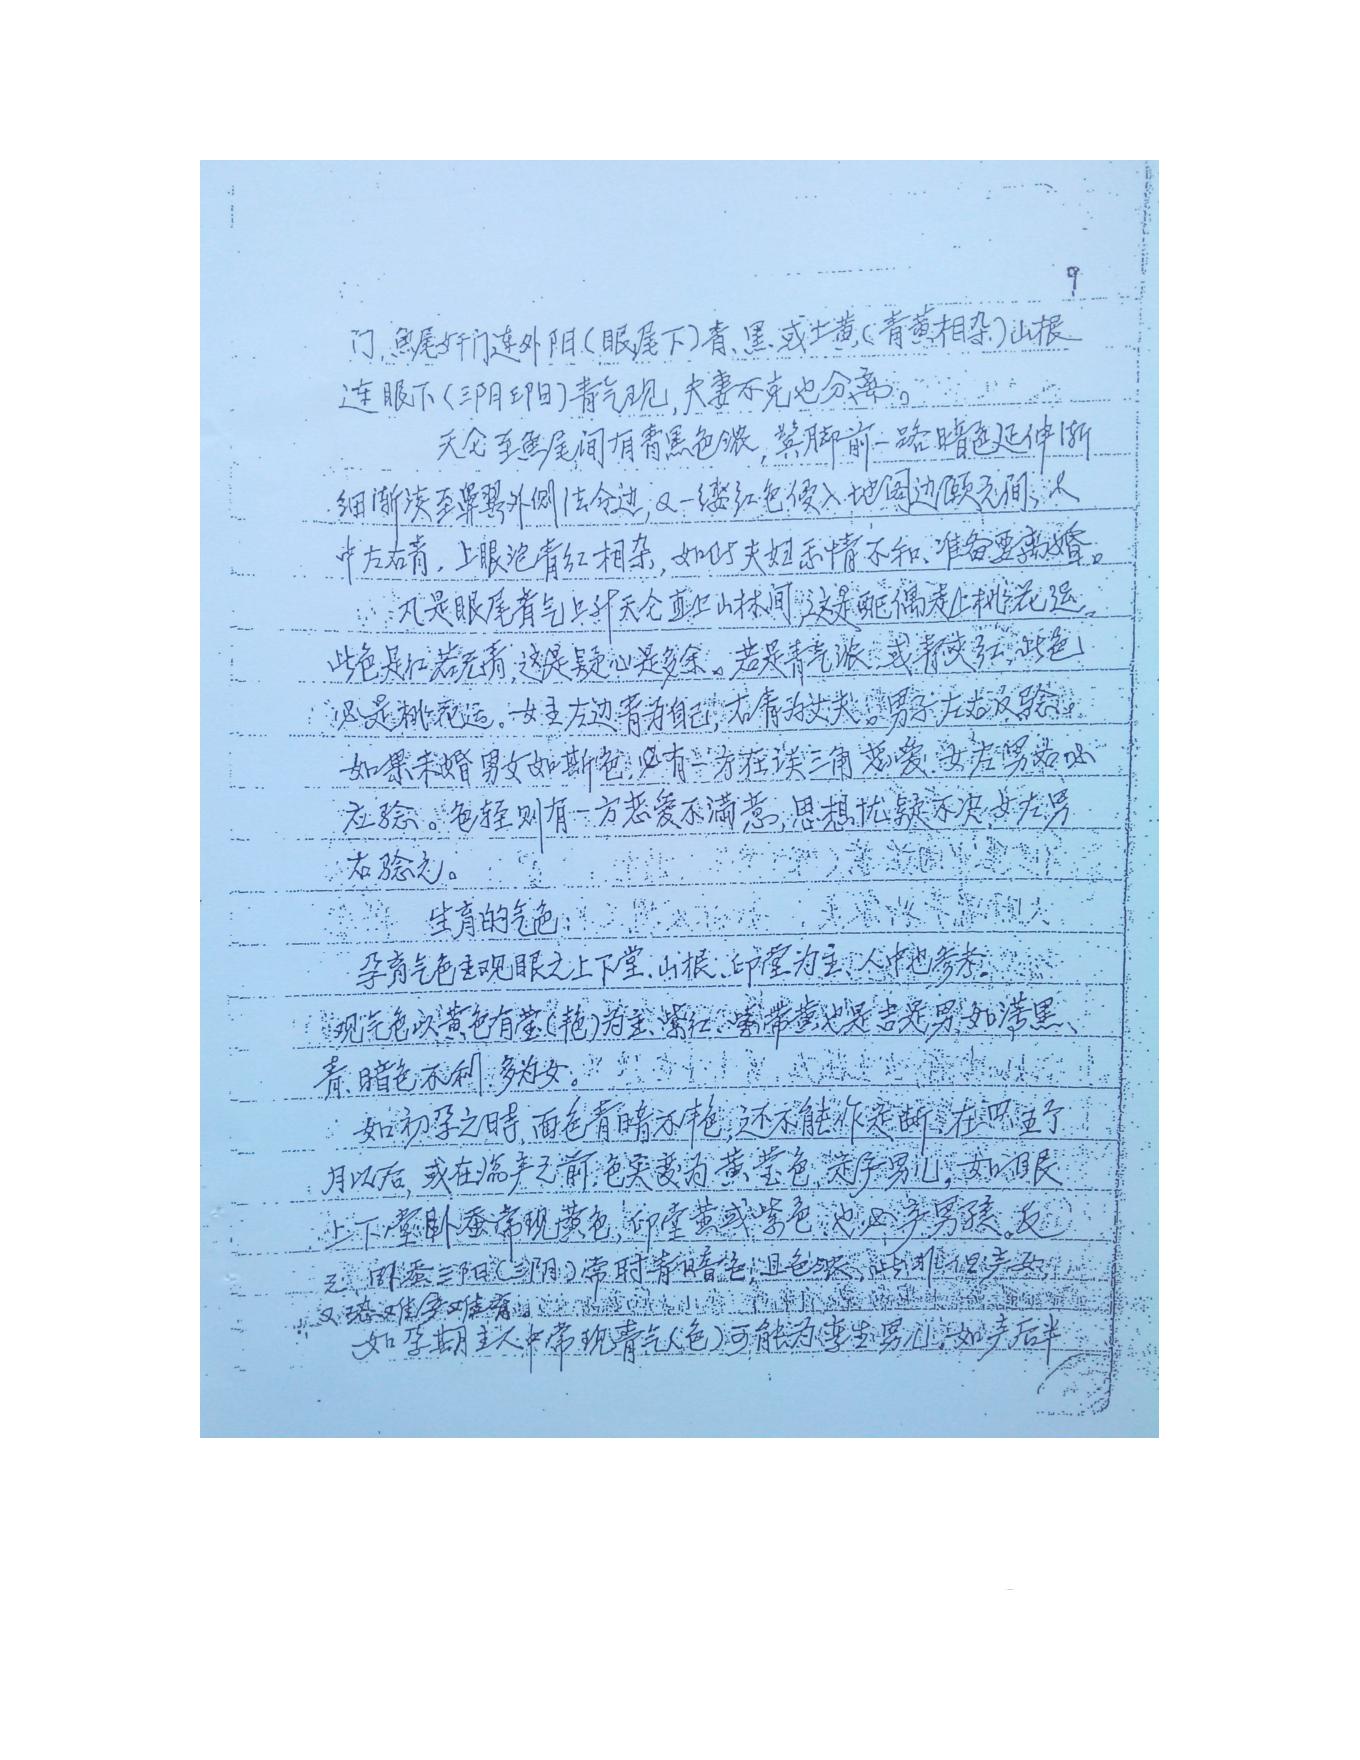 9
门,鱼尾奸门连外阳(眼尾下)青、黑或土黄(青黄相杂)山根
连眼下(三阴三阳)青气现,夫妻不克也分离。
天仓至鱼尾间有青黑色浓,鬓脚前一路暗色延伸渐
细渐淡至鼻翼外侧法令边,又一缕红色侵入地阁边颐元间,人
中左右青,上眼泡青红相杂,如此夫妇感情不和,准备要离婚。
凡是眼尾青气上升天仓直上山林间,这是配偶走上桃花运,
此色是红若无青,这是疑心是多余。若是青气浓,或青夹红,此色
必是桃花运。女主左边青为自己,右青为丈夫。男子左右反验。
如果未婚男女如斯色,必有一方在谈三角恋爱,女左男右必
应验。色轻则有一方恋爱不满意,思想忧疑不决,女左男
右验之。
生育的气色:
孕育气色主观眼之上下堂、山根、印堂为主,人中也参考。
现气色以黄色有莹(艳)为主、紫红、紫带黄也是吉是男,如滞黑、
青、暗色不利,多为女。
如初孕之时,面色青暗不艳,还不能作定断,在四五个
月以后,或在临产之前,色突变为黄莹色,定孕男儿,如眼
上下堂卧蚕常现黄色,印堂黄或紫色,也必产男孩。反
之,卧蚕三阳(三阴)常时青暗色,且色浓,此非但产女,
又恐难产难育。
如孕期主人中常现青气(色)可能为孪生男儿,如产后半